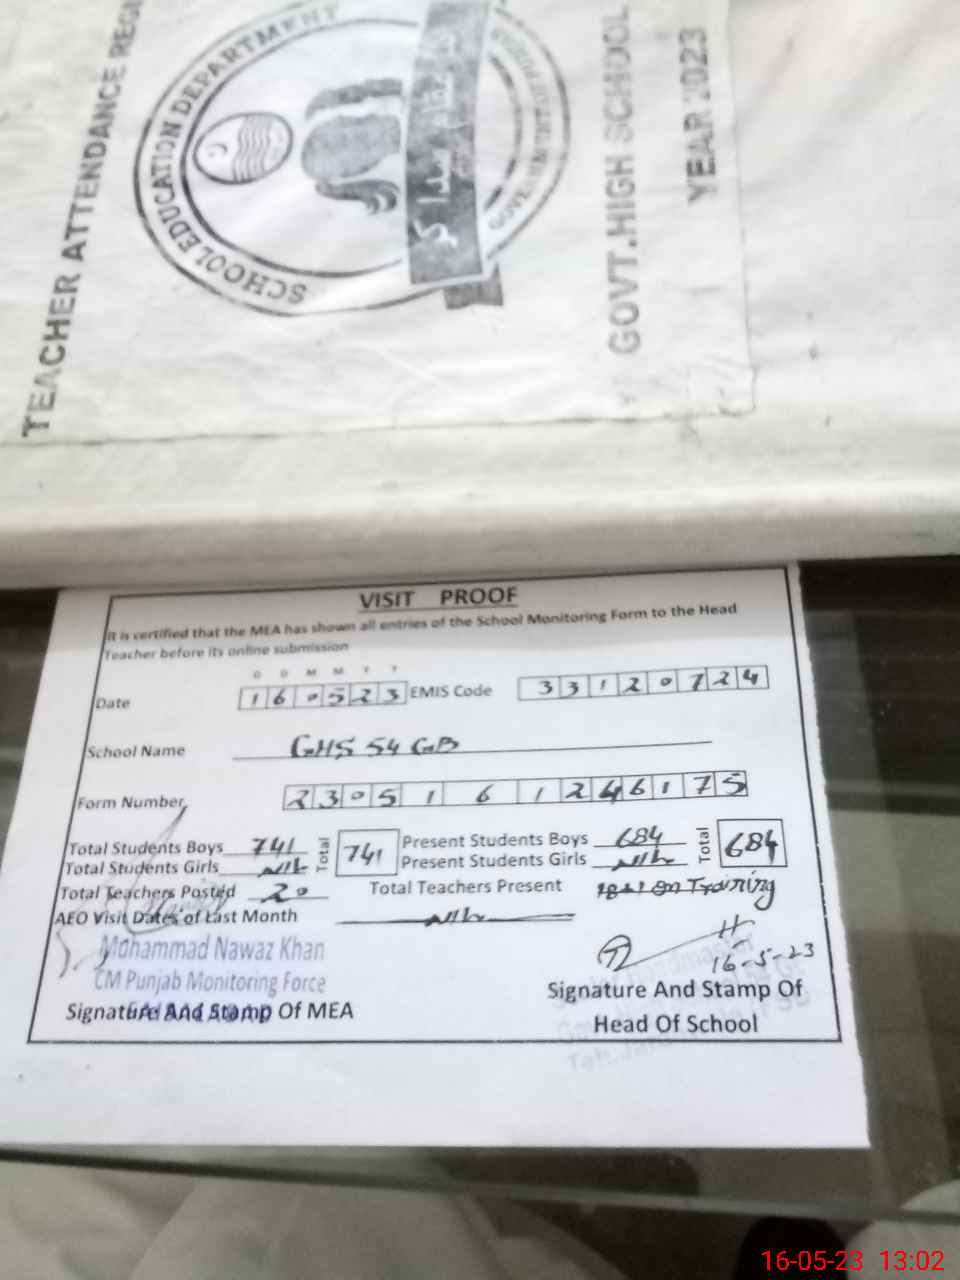 TEACHER ATTENDANCE
SCHOOL EDUCATION DEPARTMENT
GOVT.HIGH SCHOOL
YEAR 2023
VISIT PROOF
It is certified that the MEA has shown all entries of the School Monitoring Form to the Head
Teacher before its online submission
D D M M Y Y
Date 160523 EMIS Code 33120724
School Name GHS 54 GB
Form Number 2305161246175
Total Students Boys 741 Total 741 Present Students Boys 684 Total 684
Total Students Girls Nil Present Students Girls Nil
Total Teachers Posted 20 Total Teachers Present 18+1 on Training
AEO Visit Dates of Last Month Nil
Mohammad Nawaz Khan
CM Punjab Monitoring Force
16-5-23
Signature And Stamp Of MEA
Signature And Stamp Of
Head Of School
16-05-23 13:02